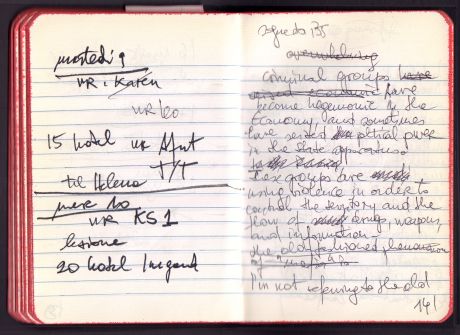 martedì 9
UR : Katen
UR 60
15 hotel UR
T/T
tel Helena
UR KS1
lezione
20 hotel
segue da 135
criminal groups have
become hegemonic in the
economy, and sometimes
have seized political power
in the state apparatus.
These groups are
using violence in order to
control the territory and the
flow of drugs, weapons,
and information -
the old fashioned,
of "mafia"
I'm not referring to the old
141